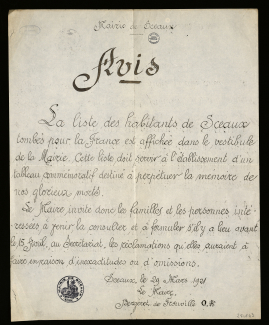 Mairie de Sceaux
Avis
La liste des habitants de Sceaux
tombés pour la France est affichée dans le vestibule
de la Mairie. Cette liste doit servir à l'établissement d'un
tableau commémoratif destiné à perpétuer la mémoire de
nos glorieux morts.
Le Maire invite donc les familles et les personnes inté-
ressées à venir la consulter et à formuler s'il y a lieu avant
le 15 Avril, au Secrétariat, les réclamations qu'elles auraient à
faire en raison d'inexactitudes ou d'omissions.
Sceaux, le 29 Mars 1921
Le Maire,
de